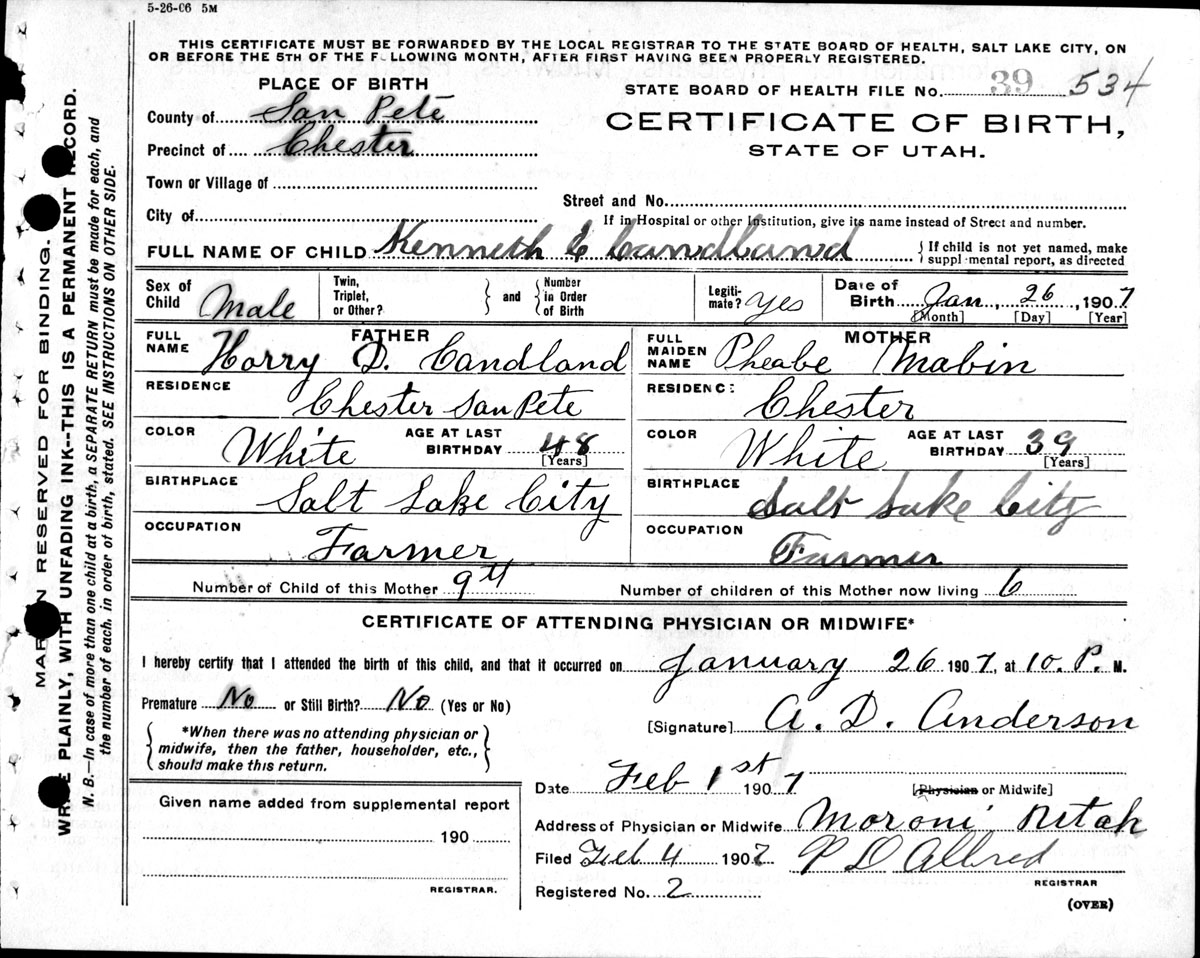 5-26-06 5M
THIS CERTIFICATE MUST BE FORWARDED BY THE LOCAL REGISTRAR TO THE STATE BOARD OF HEALTH, SALT LAKE CITY, ON
OR BEFORE THE 5TH OF THE FOLLOWING MONTH, AFTER FIRST HAVING BEEN PROPERLY REGISTERED.
PLACE OF BIRTH
STATE BOARD OF HEALTH FILE No. 39 534
County of San Pete
CERTIFICATE OF BIRTH,
Precinct of Chester
STATE OF UTAH.
Town or Village of
Street and No.
City of
If in Hospital or other Institution, give its name instead of Street and number.
FULL NAME OF CHILD Kenneth C Candland { If child is not yet named, make supplemental report, as directed
Sex of Child Male Twin, Triplet, or Other? } and { Number in Order of Birth Legitimate? Yes Date of Birth Jan, 26, 1907
[Month] [Day] [Year]
FATHER MOTHER
FULL NAME Horry D. Candland FULL MAIDEN NAME Pheabe Mabin
RESIDENCE RESIDENCE
Chester San Pete Chester
COLOR White AGE AT LAST BIRTHDAY 48 [Years] COLOR White AGE AT LAST BIRTHDAY 39 [Years]
BIRTHPLACE BIRTHPLACE
Salt Lake City Salt Lake City
OCCUPATION OCCUPATION
Farmer Farmer
Number of Child of this Mother 9th Number of children of this Mother now living 6
CERTIFICATE OF ATTENDING PHYSICIAN OR MIDWIFE*
I hereby certify that I attended the birth of this child, and that it occurred on January 26 1907, at 10. P. M.
Premature No or Still Birth? No (Yes or No)
[Signature] A. D. Anderson
{ *When there was no attending physician or
midwife, then the father, householder, etc.,
should make this return. }
Date Feb 1st 1907 [Physician or Midwife]
Given name added from supplemental report
Address of Physician or Midwife Moroni Utah
190
Filed Feb 4 1907 P D Allred
REGISTRAR. REGISTRAR
Registered No. 2
(OVER)
MARGIN RESERVED FOR BINDING.
WRITE PLAINLY, WITH UNFADING INK--THIS IS A PERMANENT RECORD.
N. B.—In case of more than one child at a birth, a SEPARATE RETURN must be made for each, and
the number of each, in order of birth, stated. SEE INSTRUCTIONS ON OTHER SIDE.